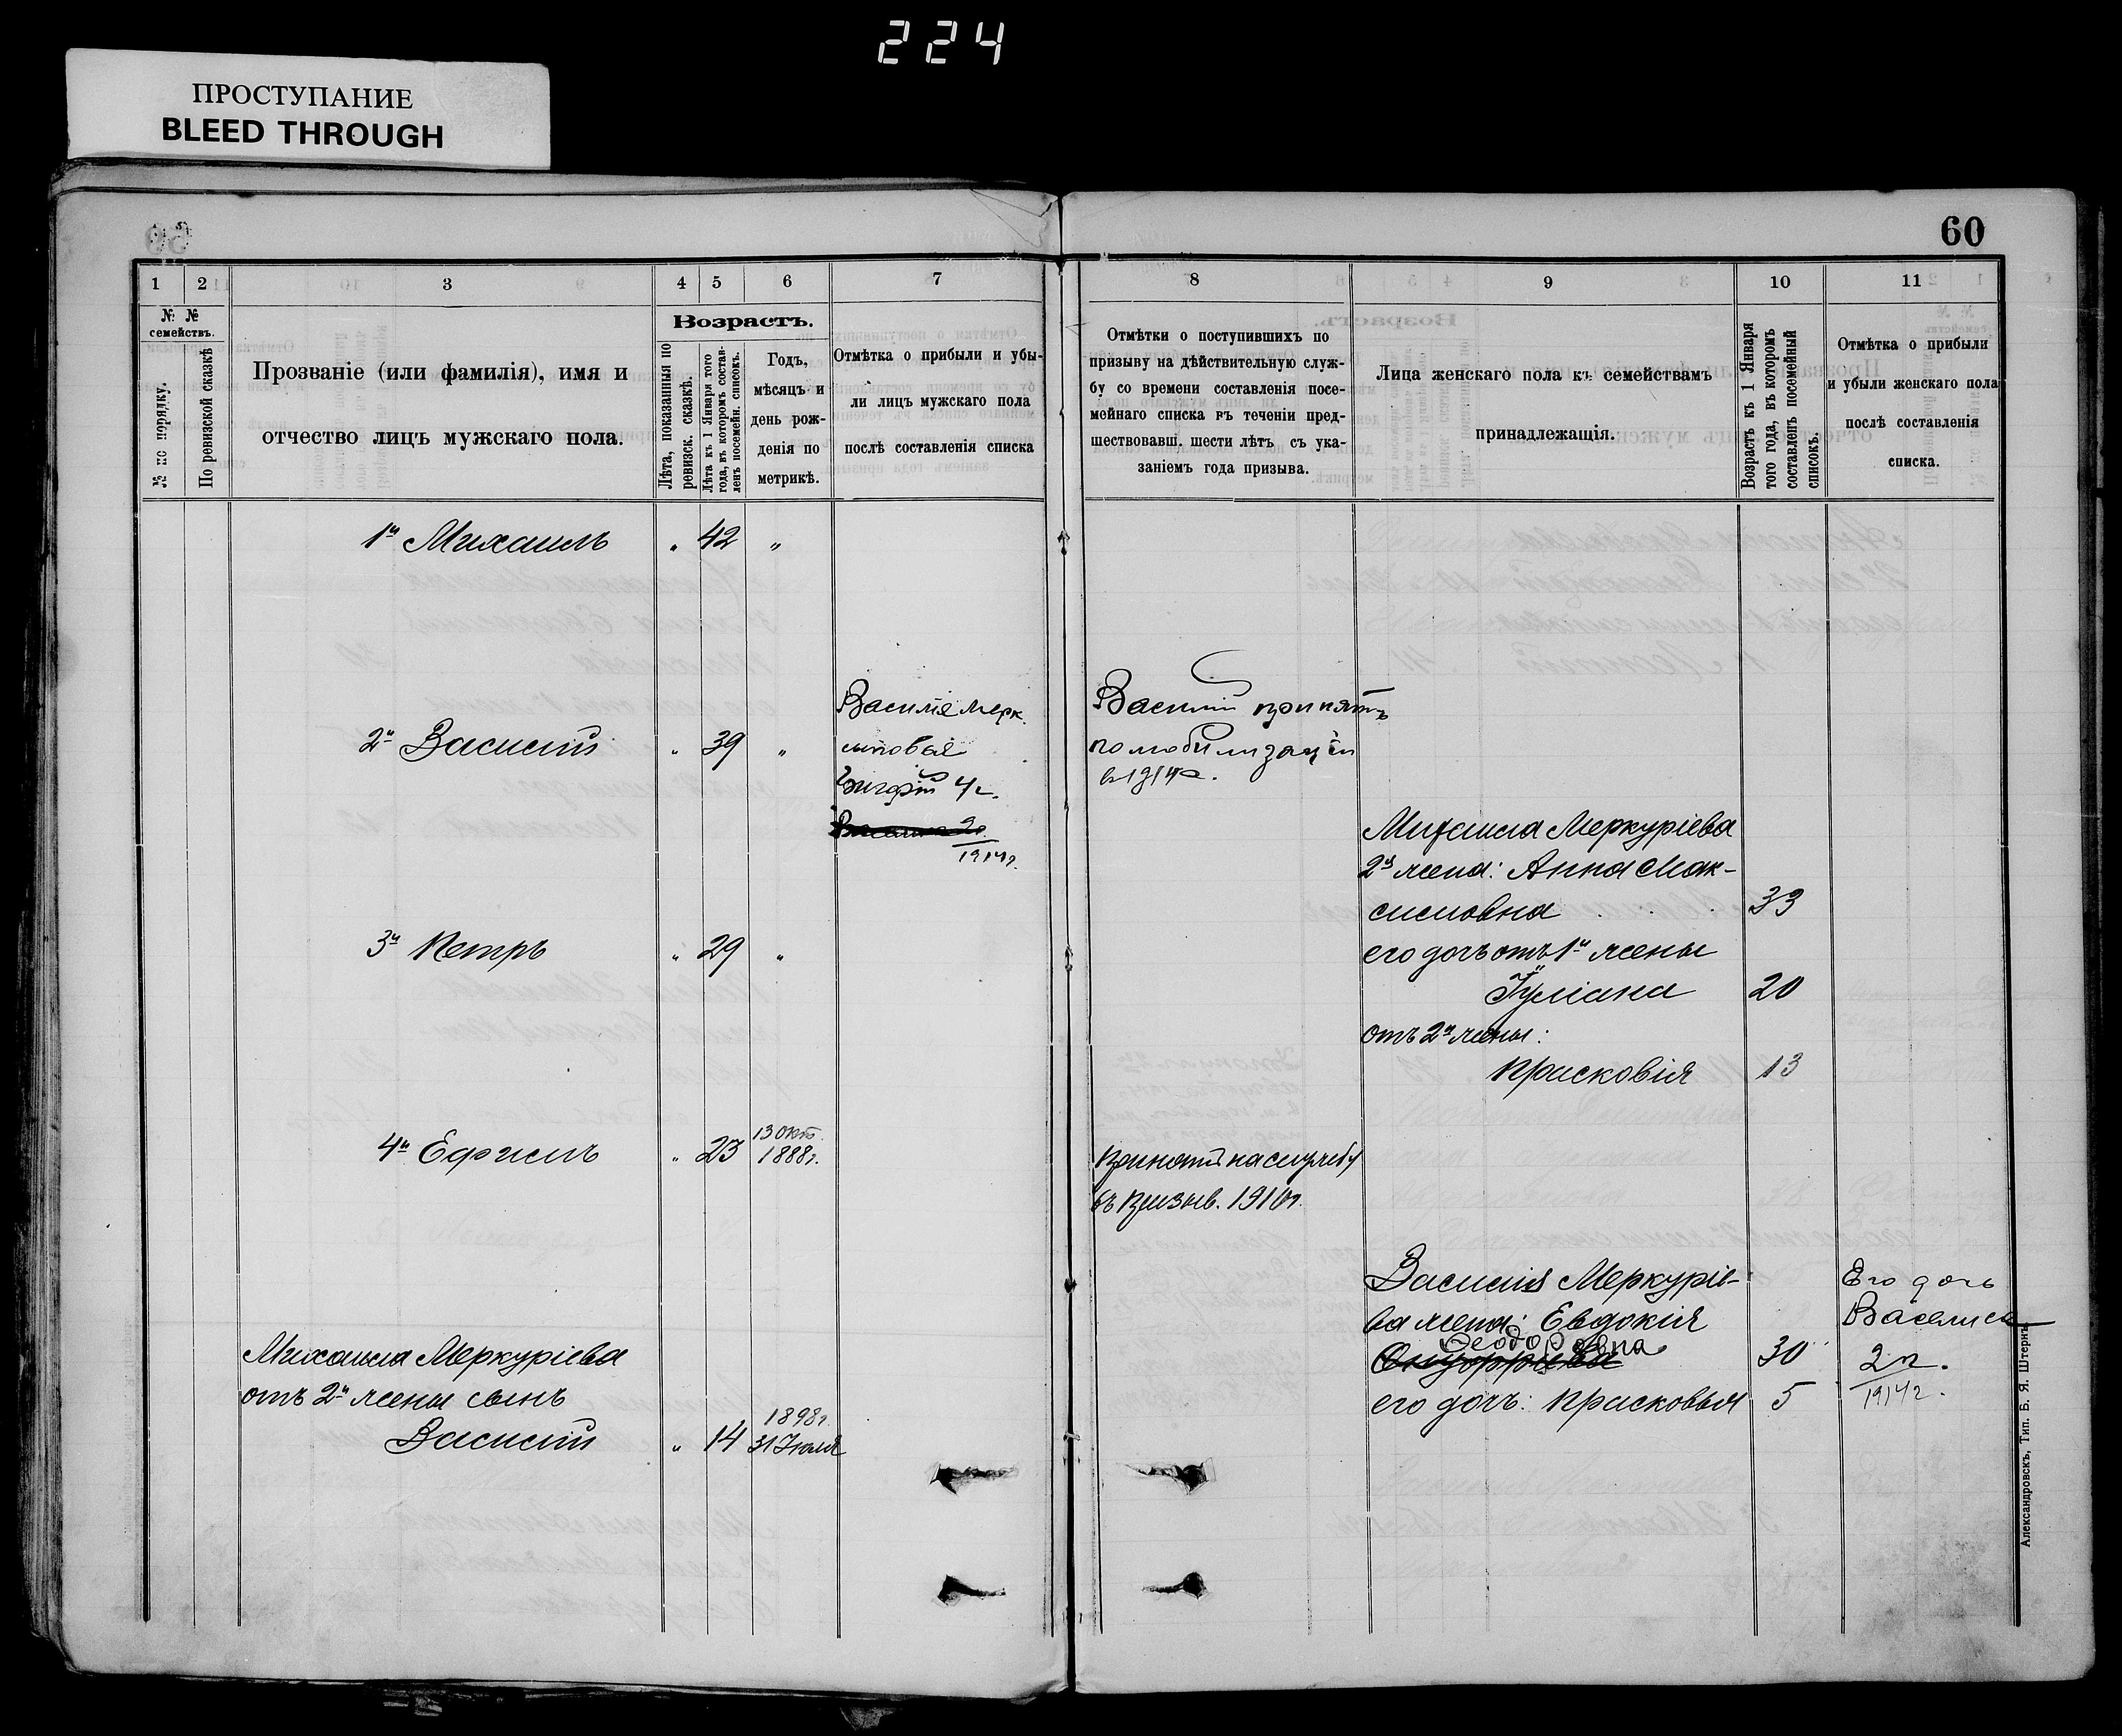 224
ПРОСТУПАНИЕ
BLEED THROUGH
60
1
2
3
4
5
6
7
8
9
10
11
№ №
семействъ.
№ по порядку.
По ревизской сказкѣ
Прозваніе (или фамилія), имя и
отчество лицъ мужскаго пола.
Возрастъ.
Лѣта, показанныя по
ревизск. сказкѣ.
Лѣта къ 1 Января того
года, въ которомъ состав-
ленъ посемейн. списокъ.
Годъ,
мѣсяцъ и
день рож-
денія по
метрикѣ.
Отмѣтка о прибыли и убы-
ли лицъ мужскаго пола
послѣ составленія списка
Отмѣтки о поступившихъ по
призыву на дѣйствительную служ-
бу со времени составленія посе-
мейнаго списка въ теченіи пред-
шествовавш. шести лѣтъ съ ука-
заніемъ года призыва.
Лица женскаго пола къ семействамъ
принадлежащія.
Возрастъ къ 1 Января
того года, въ которомъ
составленъ посемейный
списокъ.
Отмѣтка о прибыли
и убыли женскаго пола
послѣ составленія
списка.
1й Михаилъ " 42 "
2й Василій " 39 "
Василія Мерк.
4 г.
1914г.
Василій принятъ
по мобилизаціи
в 1914г.
Михаила Меркуріева
2я жена: Анна Мак-
симовна 33
3й Петръ " 29 "
его дочь отъ 1й жены
Іуліана 20
отъ 2й жены:
Прасковія 13
4й Ефимъ " 23 13 окт.
1888г.
Принятъ на службу
въ призыв. 1910г.
Василія Меркуріе-
ва жена: Евдокія
Феодоровна 30
его дочь: Прасковья 5
Его дочь
Василиса
2 л.
1914г.
Михаила Меркуріева
отъ 2й жены сынъ
Василій " 14 1898г.
31 Іюля
Александровскъ, Тип. Б. Я. Штернъ.